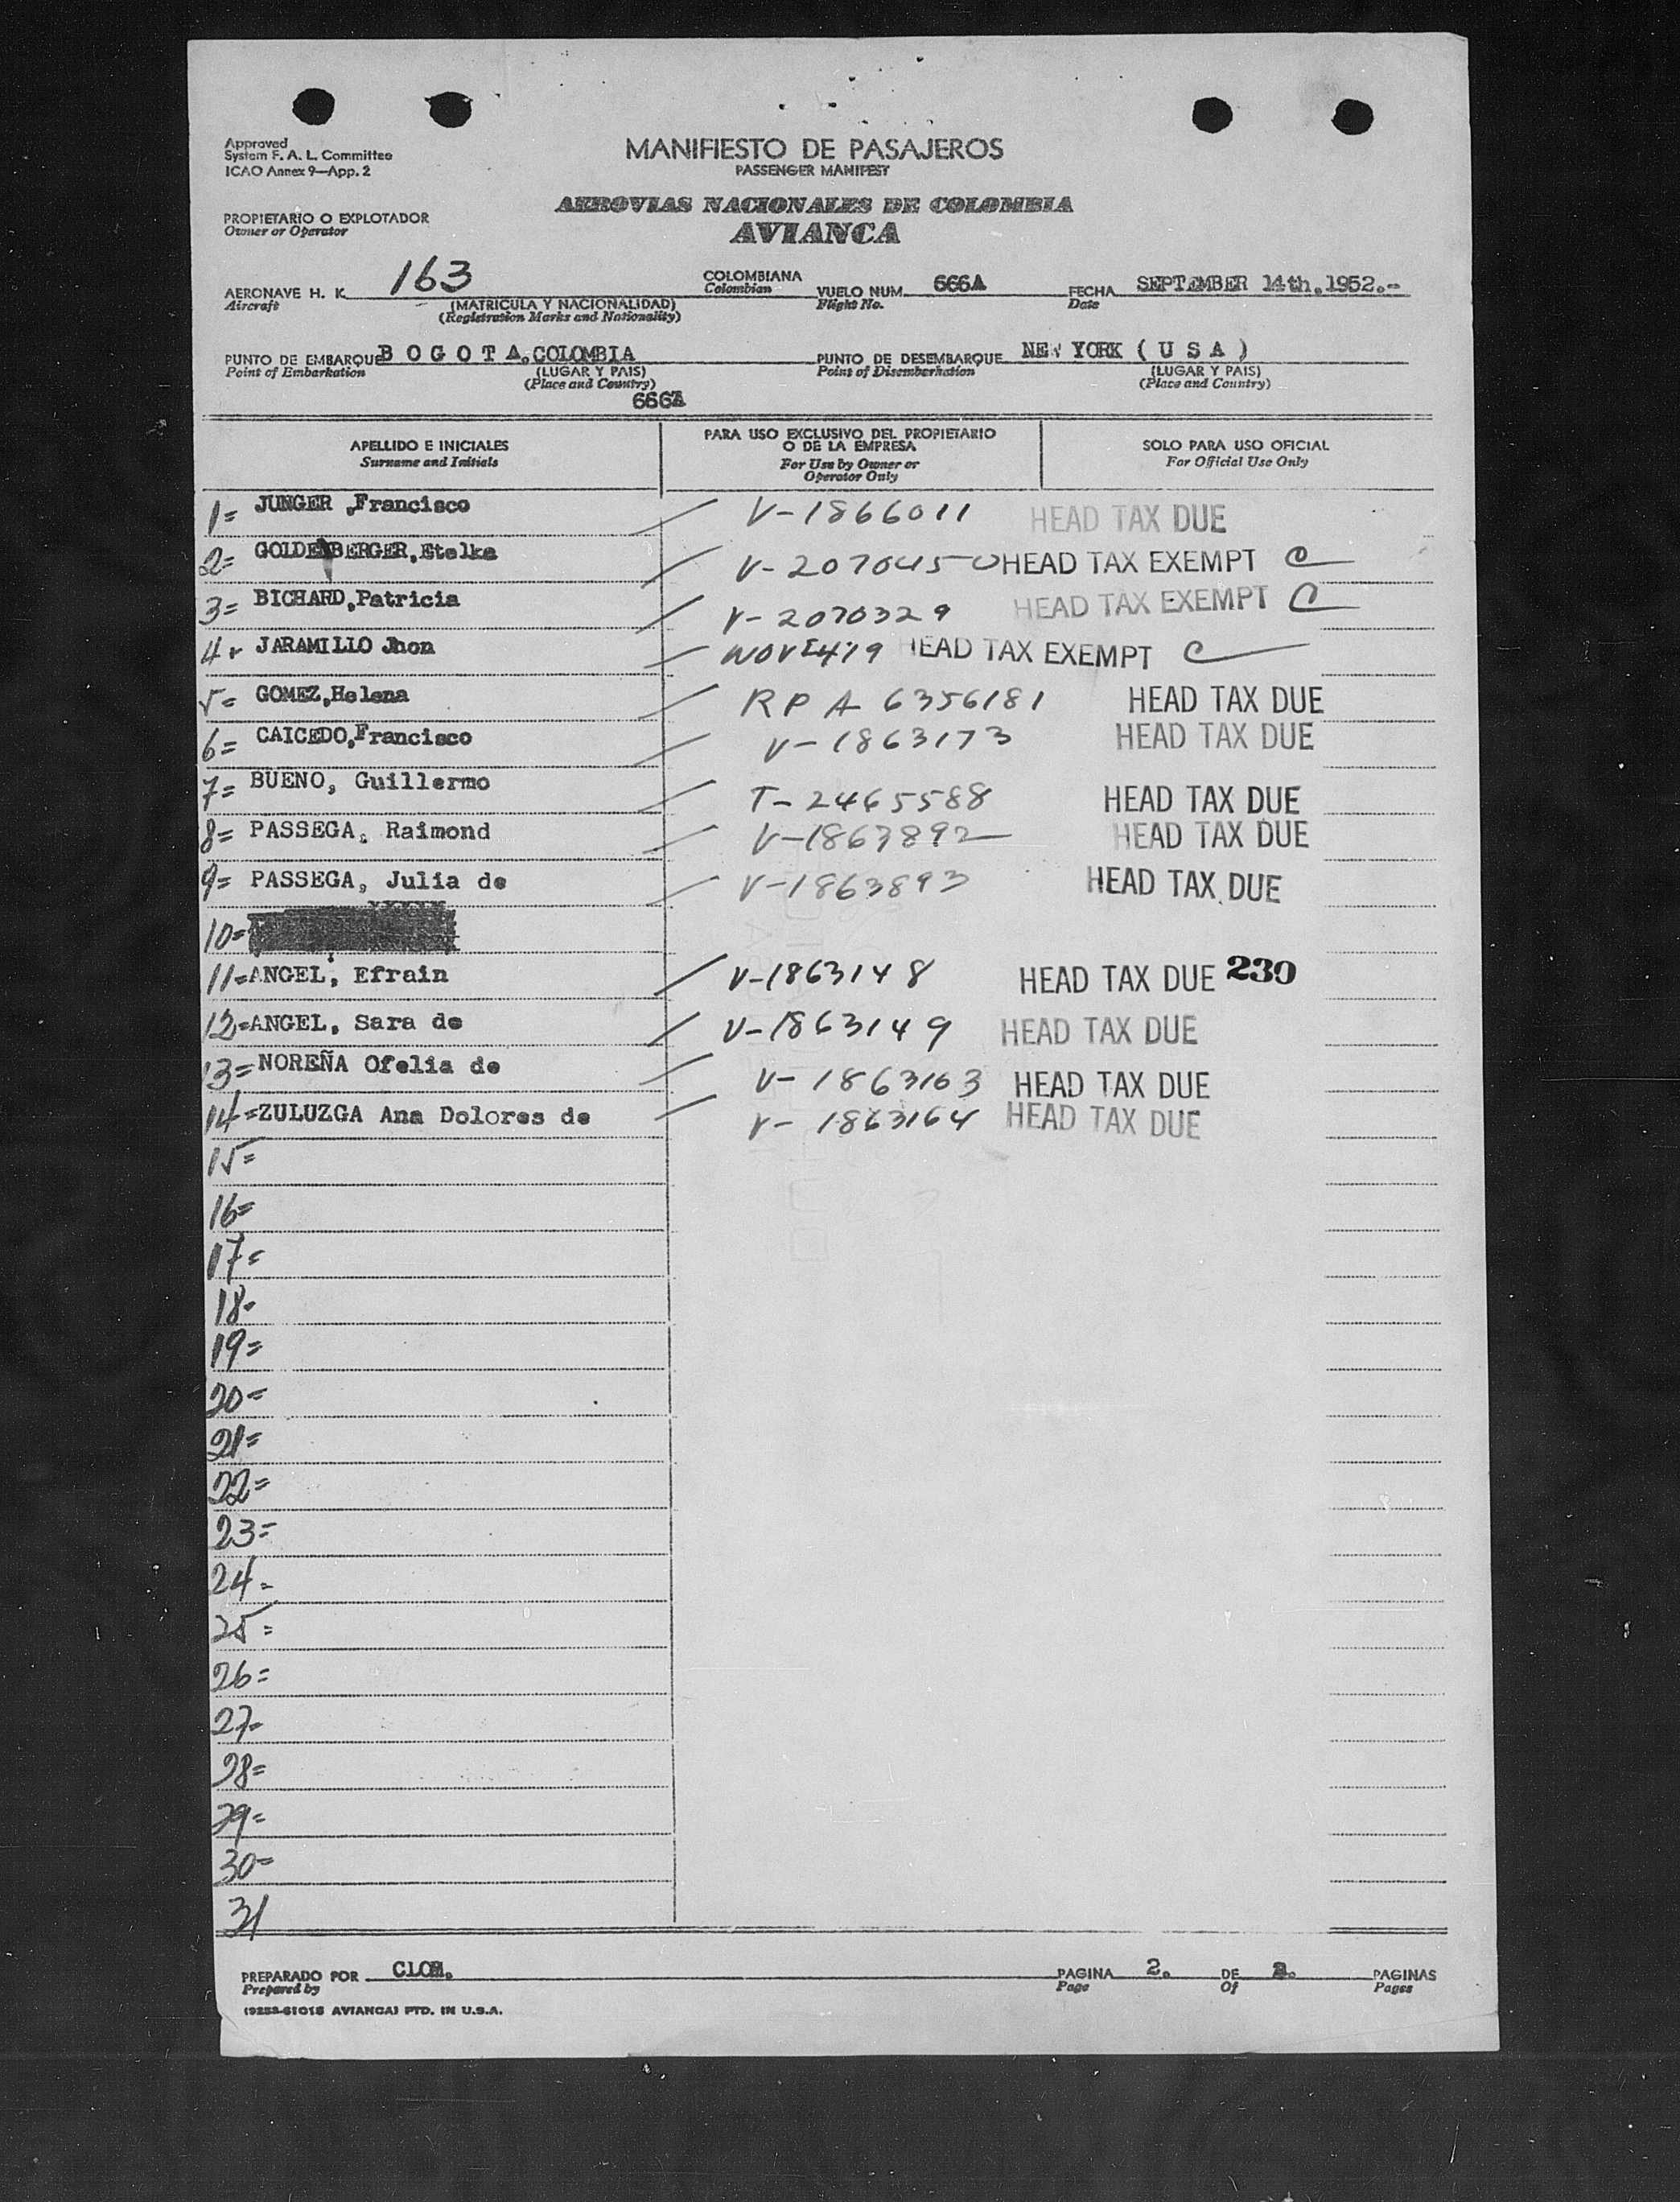 Approved
System F. A. L. Committee
ICAO Annex 9—App. 2
MANIFIESTO DE PASAJEROS
PASSENGER MANIFEST
PROPIETARIO O EXPLOTADOR
Owner or Operator
AEROVIAS NACIONALES DE COLOMBIA
AVIANCA
AERONAVE H. K. 163 COLOMBIANA VUELO NUM. 666A FECHA SEPTEMBER 14th.1952.-
Aircraft (MATRICULA Y NACIONALIDAD) Colombian Flight No. Date
(Registration Marks and Nationality)
PUNTO DE EMBARQUE B O G O T A.COLOMBIA PUNTO DE DESEMBARQUE NEW YORK ( U S A )
Point of Embarkation (LUGAR Y PAIS) Point of Disembarkation (LUGAR Y PAIS)
(Place and Country) (Place and Country)
666A
APELLIDO E INICIALES PARA USO EXCLUSIVO DEL PROPIETARIO O DE LA EMPRESA SOLO PARA USO OFICIAL
Surname and Initials For Use by Owner or Operator Only For Official Use Only
1= JUNGER ,Francisco V-1866011 HEAD TAX DUE
2= GOLDENBERGER,Etelka V-2070450 HEAD TAX EXEMPT C
3= BICHARD,Patricia V-2070329 HEAD TAX EXEMPT C
4= JARAMILLO Jhon HEAD TAX EXEMPT C
5= GOMEZ,Helena RPA 6356181 HEAD TAX DUE
6= CAICEDO,Francisco V-1863173 HEAD TAX DUE
7= BUENO, Guillermo T-2465588 HEAD TAX DUE
8= PASSEGA, Raimond V-1863892 HEAD TAX DUE
9= PASSEGA, Julia de V-1863893 HEAD TAX DUE
10=
11= ANGEL, Efrain V-1863148 HEAD TAX DUE 230
12= ANGEL, Sara de V-1863149 HEAD TAX DUE
13= NOREÑA Ofelia de V-1863163 HEAD TAX DUE
14= ZULUZGA Ana Dolores de V-1863164 HEAD TAX DUE
15=
16=
17=
18-
19=
20=
21=
22=
23=
24-
25=
26=
27-
28=
29=
30=
31
PREPARADO POR CLOM. PAGINA 2. DE 2. PAGINAS
Prepared by Page Of Pages
(9252-61018 AVIANCA) PTD. IN U.S.A.